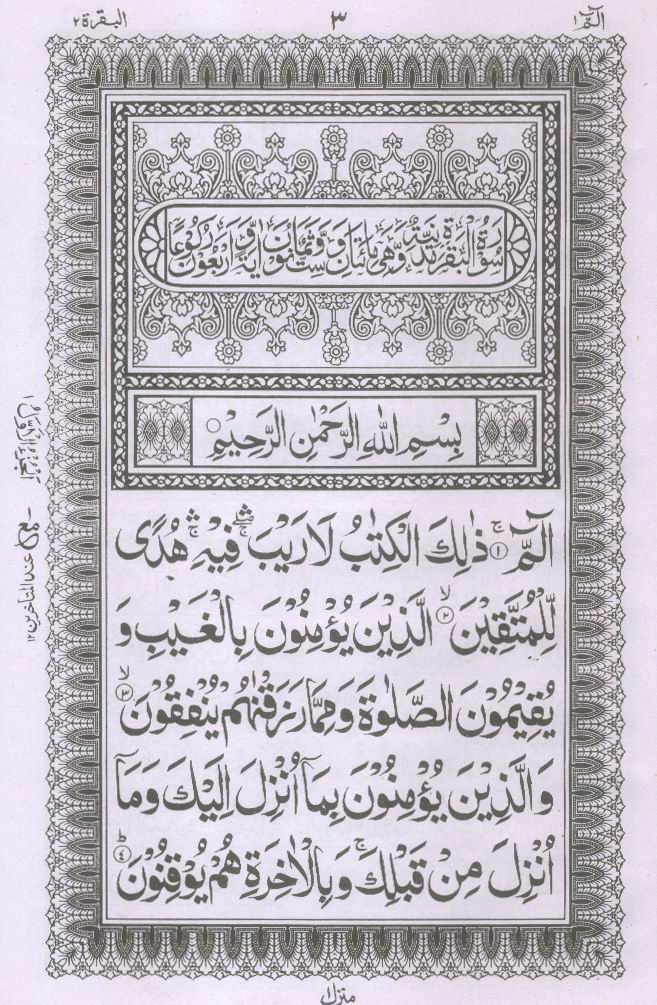 الٓمّٓ ١
٣
البقرة ٢
سُوْرَةُ الْبَقَرَةِ مَدَنِيَّةٌ وَّهِىَ مِائَتَانِ وَسِتٌّ وَّثَمَانُوْنَ اٰيَةً وَّ اَرْبَعُوْنَ رُكُوْعًا
بِسْمِ اللّٰهِ الرَّحْمٰنِ الرَّحِيْمِ ○
الٓمّٓ ۚ ﴿١﴾ ذٰلِكَ الْكِتٰبُ لَا رَيْبَ ۛۖۚ فِيْهِ ۛۚ هُدًى
لِّلْمُتَّقِيْنَ ۙ ﴿٢﴾ الَّذِيْنَ يُؤْمِنُوْنَ بِالْغَيْبِ وَ
يُقِيْمُوْنَ الصَّلٰوةَ وَمِمَّا رَزَقْنٰهُمْ يُنْفِقُوْنَ ۙ ﴿٣﴾
وَالَّذِيْنَ يُؤْمِنُوْنَ بِمَآ اُنْزِلَ اِلَيْكَ وَمَآ
اُنْزِلَ مِنْ قَبْلِكَ ۚ وَبِالْاٰخِرَةِ هُمْ يُوْقِنُوْنَ ؕ ﴿٤﴾
منزل ١